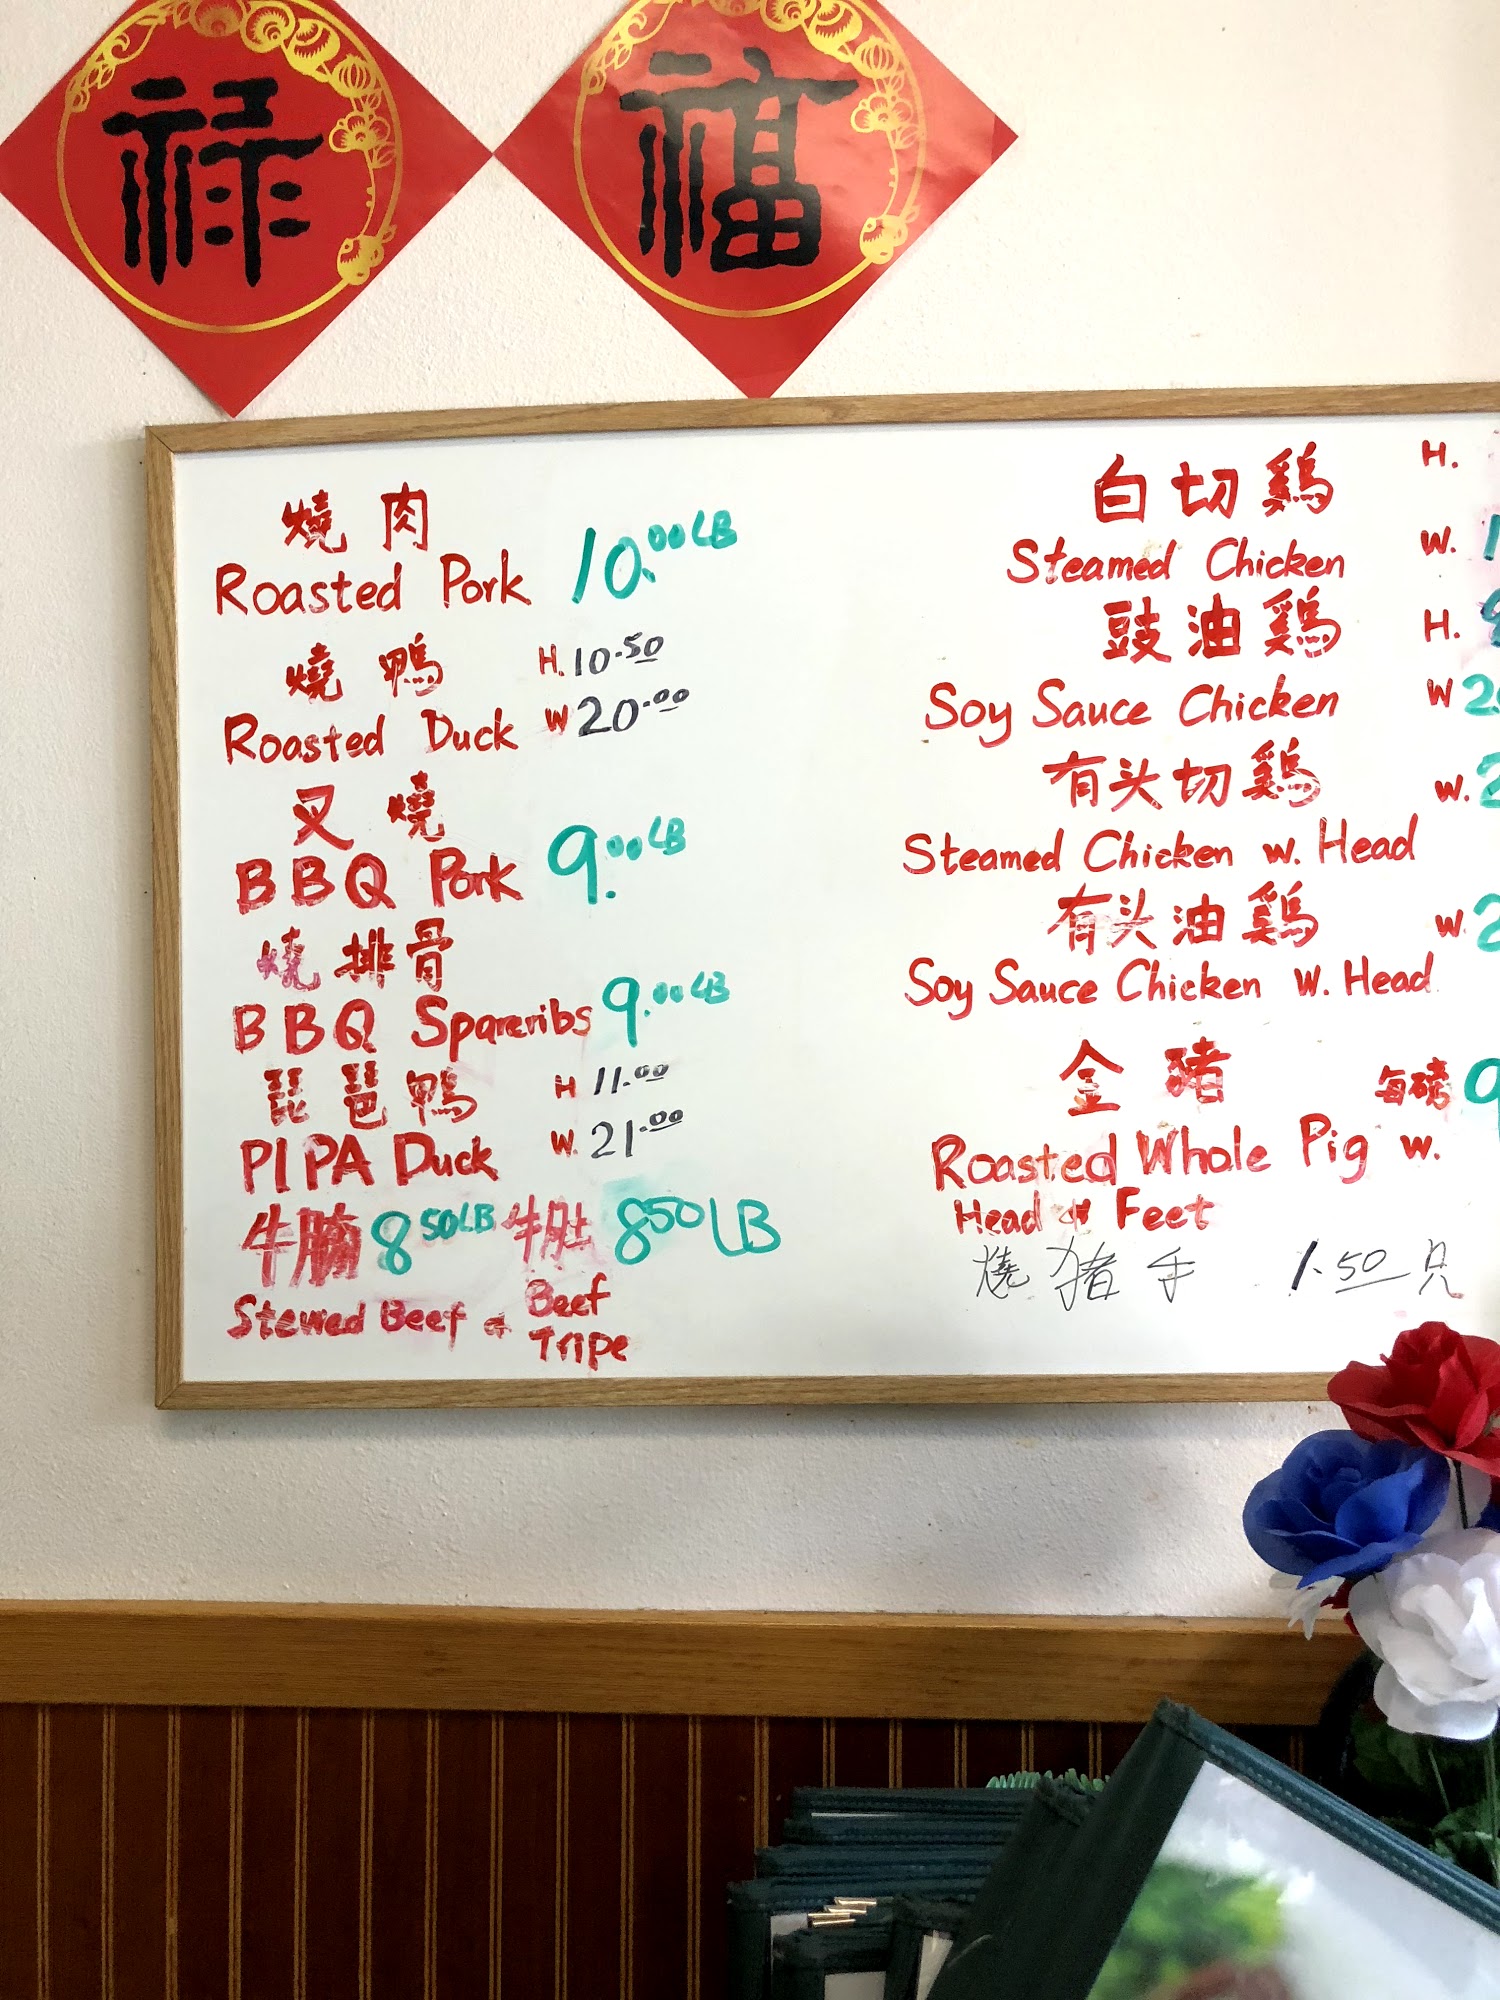 禄
福
燒肉
Roasted Pork 10.00 LB
燒鴨 H. 10.50
Roasted Duck W 20.00
叉燒
BBQ Pork 9.00 LB
燒排骨
BBQ Spareribs 9.00 LB
琵琶鴨 H 11.00
PIPA Duck W. 21.00
牛腩 8 50 LB 牛肚 8 50 LB
Stewed Beef & Beef
Tripe
白切鷄 H.
Steamed Chicken W.
豉油鷄 H.
Soy Sauce Chicken W
有头切鷄
Steamed Chicken w. Head W.
有头油鷄 W.
Soy Sauce Chicken W. Head
金猪 每磅
Roasted Whole Pig w.
Head & Feet
燒猪手 1.50 只